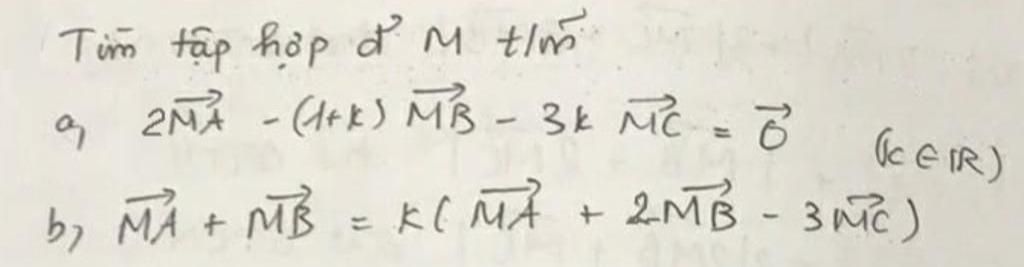 Tìm tập hợp đ' M t/m̃
a, 2\overrightarrow{MA} - (1+k) \overrightarrow{MB} - 3k \overrightarrow{MC} = \overrightarrow{0} (k ∈ ℝ)
b, \overrightarrow{MA} + \overrightarrow{MB} = k( \overrightarrow{MA} + 2\overrightarrow{MB} - 3\overrightarrow{MC} )